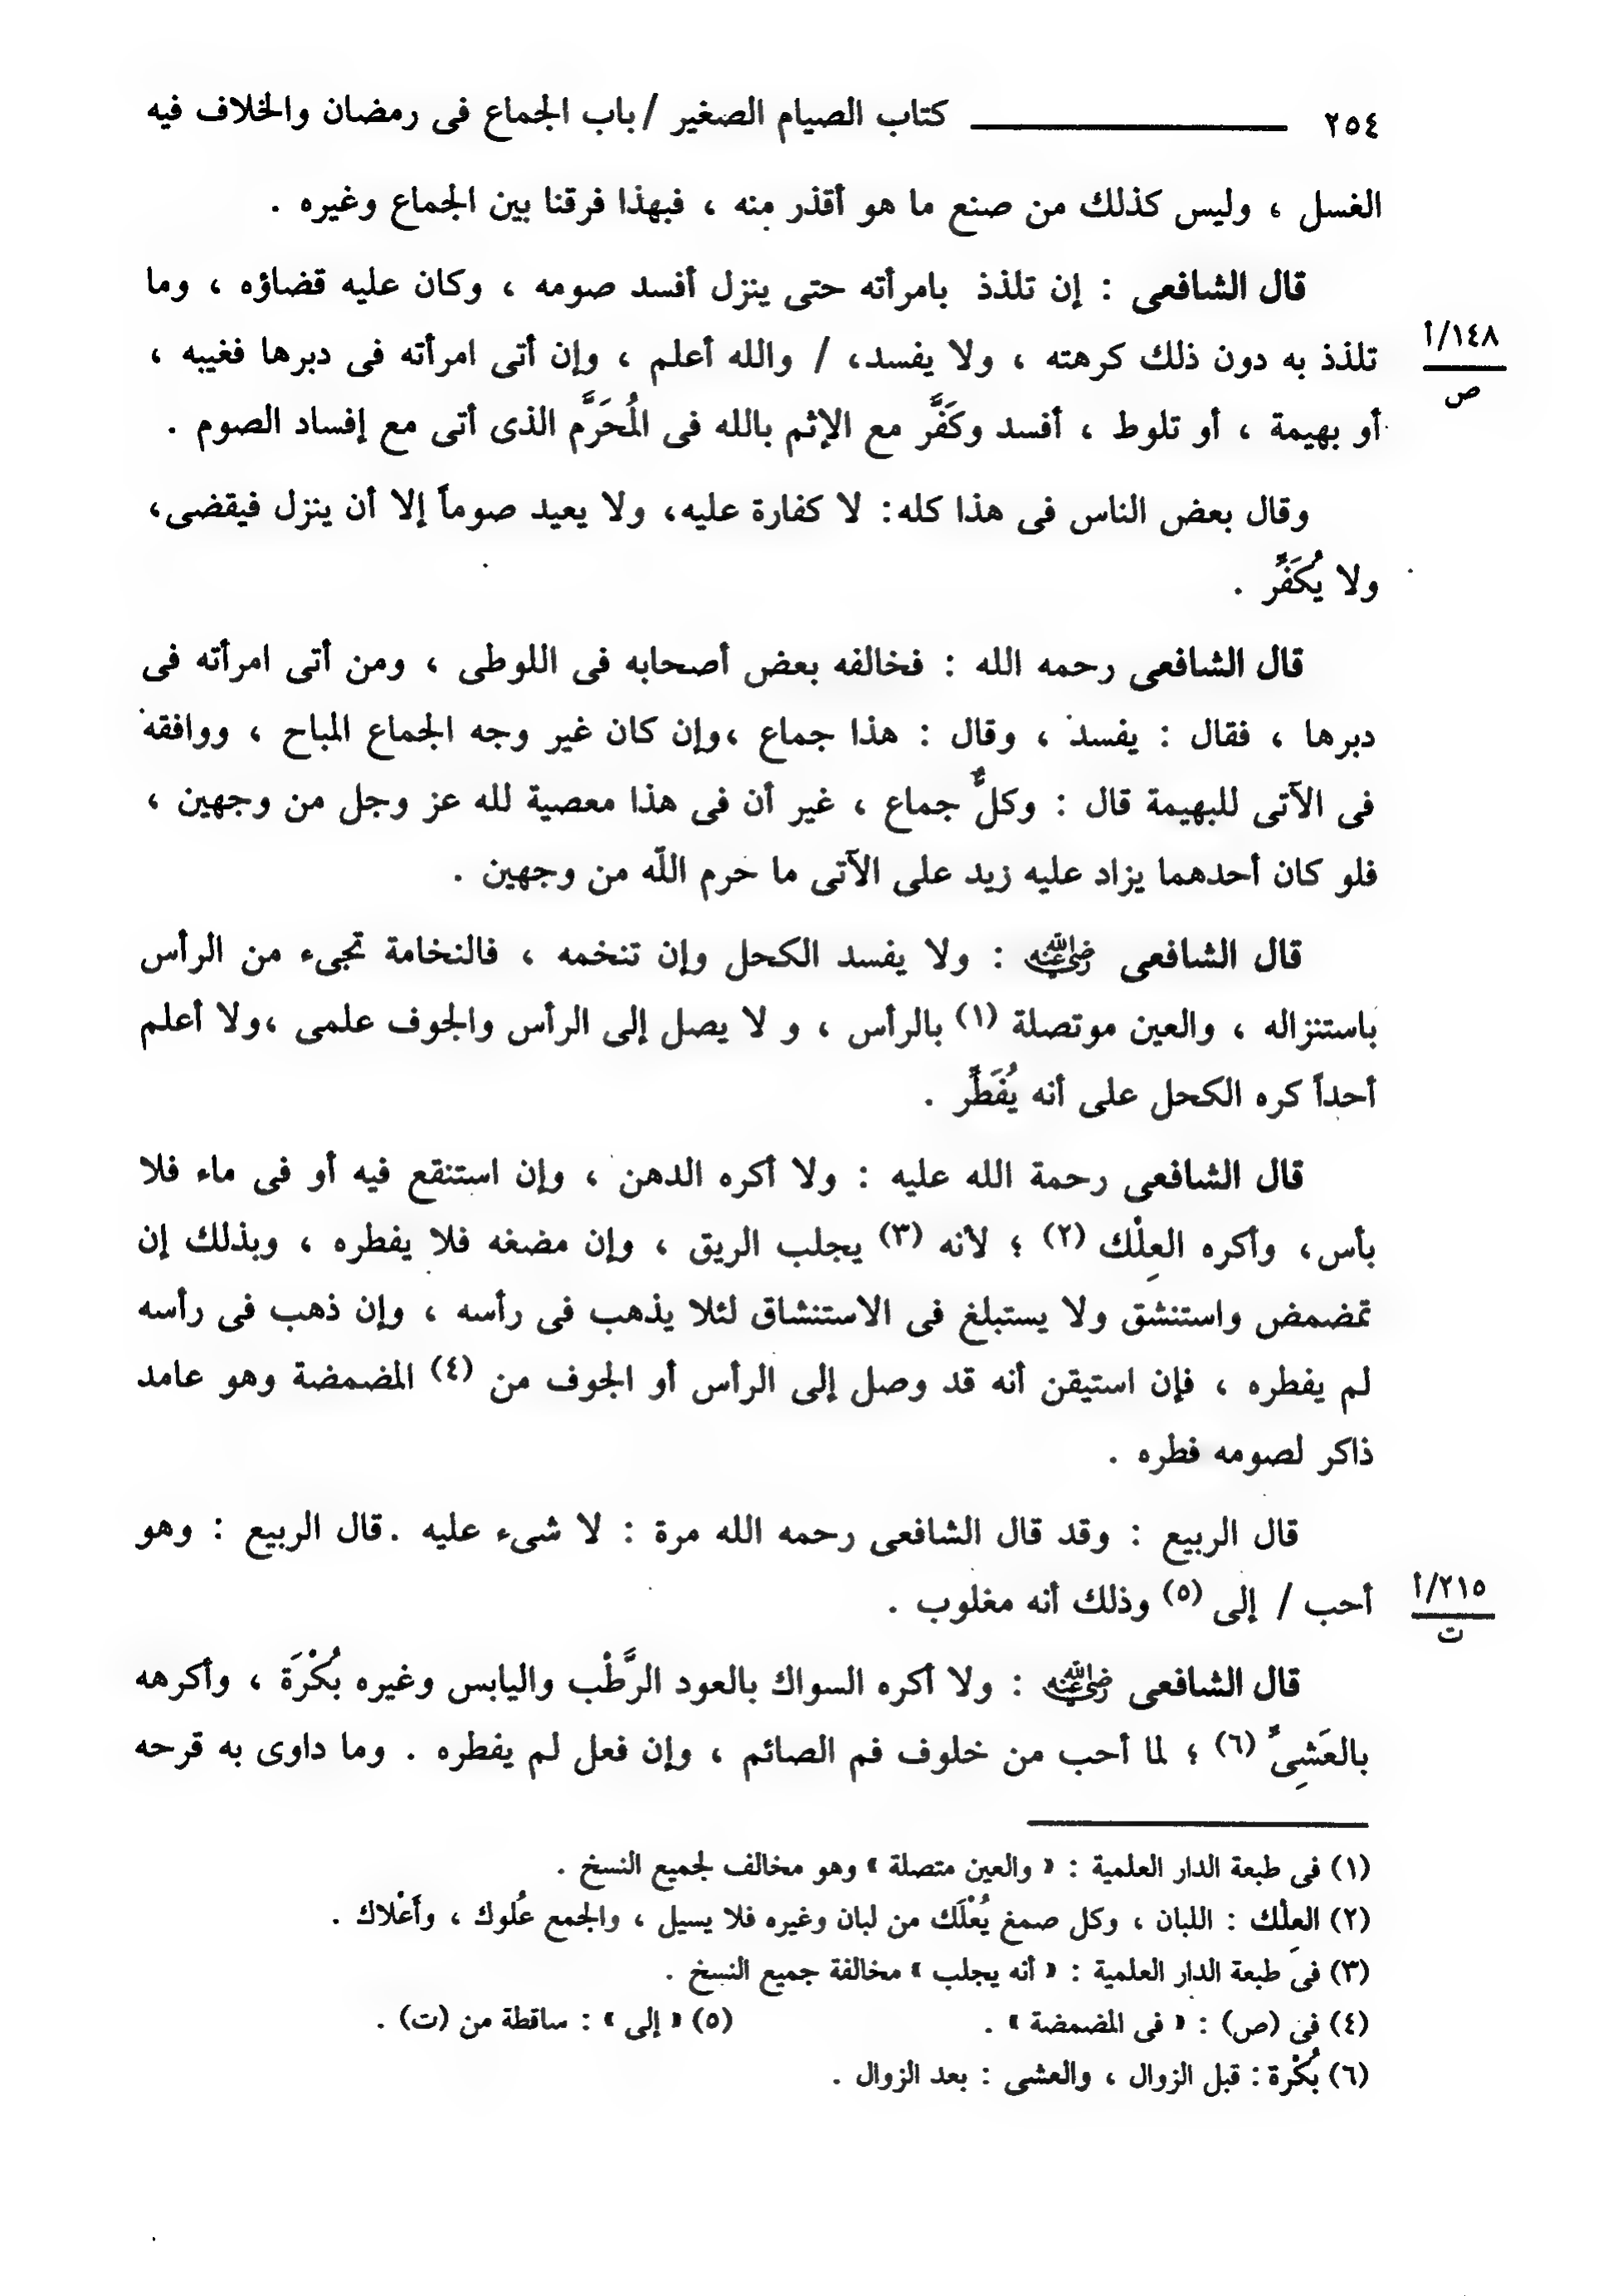 ٢٥٤ كتاب الصيام الصغير / باب الجماع فى رمضان والخلاف فيه
الغسل ، وليس كذلك من صنع ما هو أقذر منه ، فبهذا فرقنا بين الجماع وغيره .
قال الشافعى : إن تلذذ بامرأته حتى ينزل أفسد صومه ، وكان عليه قضاؤه ، وما
تلذذ به دون ذلك كرهته ، ولا يفسد، / والله أعلم ، وإن أتى امرأته فى دبرها فغيبه ،
١٤٨/أ
ص
أو بهيمة ، أو تلوط ، أفسد وكَفَّر مع الإثم بالله فى المُحَرَّم الذى أتى مع إفساد الصوم .
وقال بعض الناس فى هذا كله: لا كفارة عليه، ولا يعيد صوماً إلا أن ينزل فيقضى،
ولا يُكَفِّر .
قال الشافعى رحمه الله : فخالفه بعض أصحابه فى اللوطى ، ومن أتى امرأته فى
دبرها ، فقال : يفسد ، وقال : هذا جماع ،وإن كان غير وجه الجماع المباح ، ووافقه
فى الآتى للبهيمة قال : وكلٌّ جماع ، غير أن فى هذا معصية لله عز وجل من وجهين ،
فلو كان أحدهما يزاد عليه زيد على الآتى ما حرم الله من وجهين .
قال الشافعى رضي الله عنه : ولا يفسد الكحل وإن تنخمه ، فالنخامة تجىء من الرأس
باستنزاله ، والعين موتصلة (١) بالرأس ، و لا يصل إلى الرأس والجوف علمى ،ولا أعلم
أحداً كره الكحل على أنه يُفَطِّر .
قال الشافعى رحمة الله عليه : ولا أكره الدهن ، وإن استنقع فيه أو فى ماء فلا
بأس، وأكره العِلْك (٢) ؛ لأنه (٣) يجلب الريق ، وإن مضغه فلا يفطره ، وبذلك إن
تمضمض واستنشق ولا يستبلغ فى الاستنشاق لئلا يذهب فى رأسه ، وإن ذهب فى رأسه
لم يفطره ، فإن استيقن أنه قد وصل إلى الرأس أو الجوف من (٤) المضمضة وهو عامد
ذاكر لصومه فطره .
قال الربيع : وقد قال الشافعى رحمه الله مرة : لا شىء عليه .قال الربيع : وهو
أحب / إلى (٥) وذلك أنه مغلوب .
٢١٥/أ
ت
قال الشافعى رضي الله عنه : ولا أكره السواك بالعود الرَّطْب واليابس وغيره بُكْرَة ، وأكرهه
بالعَشِىِّ (٦) ؛ لما أحب من خلوف فم الصائم ، وإن فعل لم يفطره . وما داوى به قرحه
(١) فى طبعة الدار العلمية : « والعين متصلة » وهو مخالف لجميع النسخ .
(٢) العِلْك : اللبان ، وكل صمغ يُعْلَك من لبان وغيره فلا يسيل ، والجمع عُلوك ، وأَعْلاك .
(٣) فى طبعة الدار العلمية : « أنه يجلب » مخالفة جميع النسخ .
(٤) فى (ص) : « فى المضمضة » . (٥) « إلى » : ساقطة من (ت) .
(٦) بُكْرة : قبل الزوال ، والعشى : بعد الزوال .